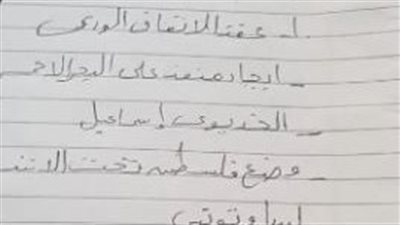 ا- عقدت الاتفاق الودى
- ايجاد منفذ على البحر الاحمر
- الخديوى إسماعيل
- وضع فلسطين تحت الانتد